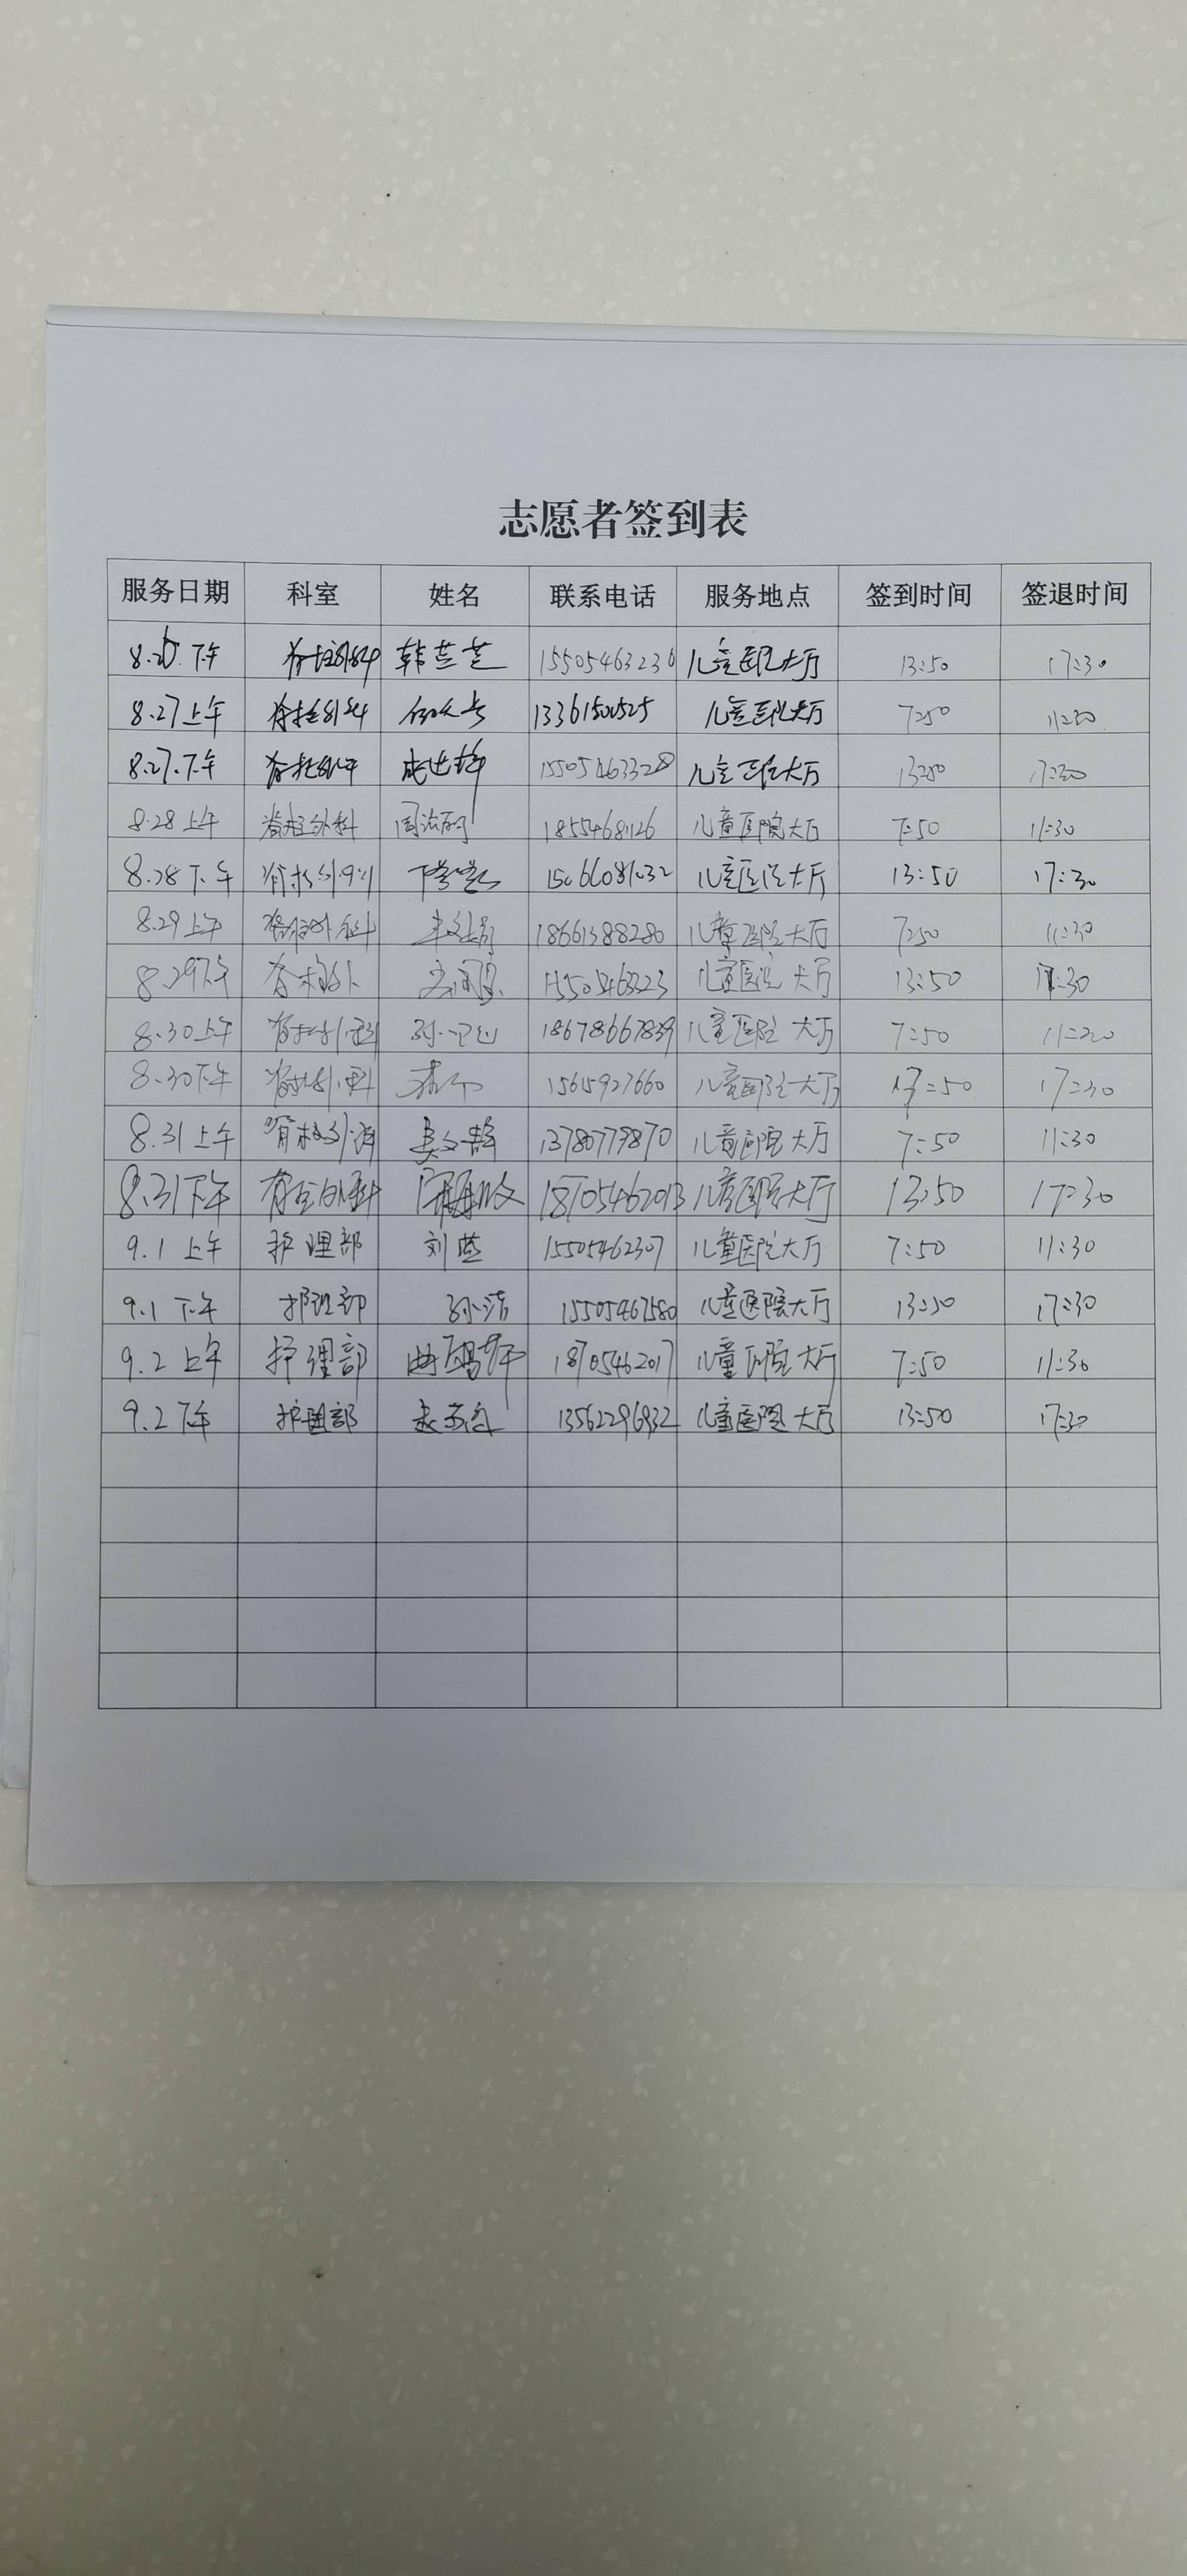 志愿者签到表
服务日期 科室 姓名 联系电话 服务地点 签到时间 签退时间
下午 脊柱外科 韩芸芸 15505463236 儿童医院大厅 13:50 17:30
8.27上午 脊柱外科 13361500525 儿童医院大厅 7:50 11:30
8.27.下午 脊柱外科 15505463328 儿童医院大厅 13:50 17:30
8.28上午 脊柱外科 18554681126 儿童医院大厅 7:50 11:30
8.28下午 脊柱外科 15066081032 儿童医院大厅 13:50 17:30
8.29上午 脊柱外科 18661388280 儿童医院大厅 7:50 11:30
8.29下午 脊柱外 15505463323 儿童医院大厅 13:50 17:30
8.30上午 脊柱外科 18678667839 儿童医院大厅 7:50 11:30
8.30下午 脊柱外科 儿童医院大厅 13:50 17:30
8.31上午 脊柱外科 13780779870 儿童医院大厅 7:50 11:30
8.31下午 脊柱外科 18705462013 儿童医院大厅 13:50 17:30
9.1上午 护理部 刘蓝 15505462307 儿童医院大厅 7:50 11:30
9.1下午 护理部 孙洁 15505467580 儿童医院大厅 13:50 17:30
9.2上午 护理部 18705462017 儿童医院大厅 7:50 11:30
9.2下午 护理部 13562296932 儿童医院大厅 13:50 17:30